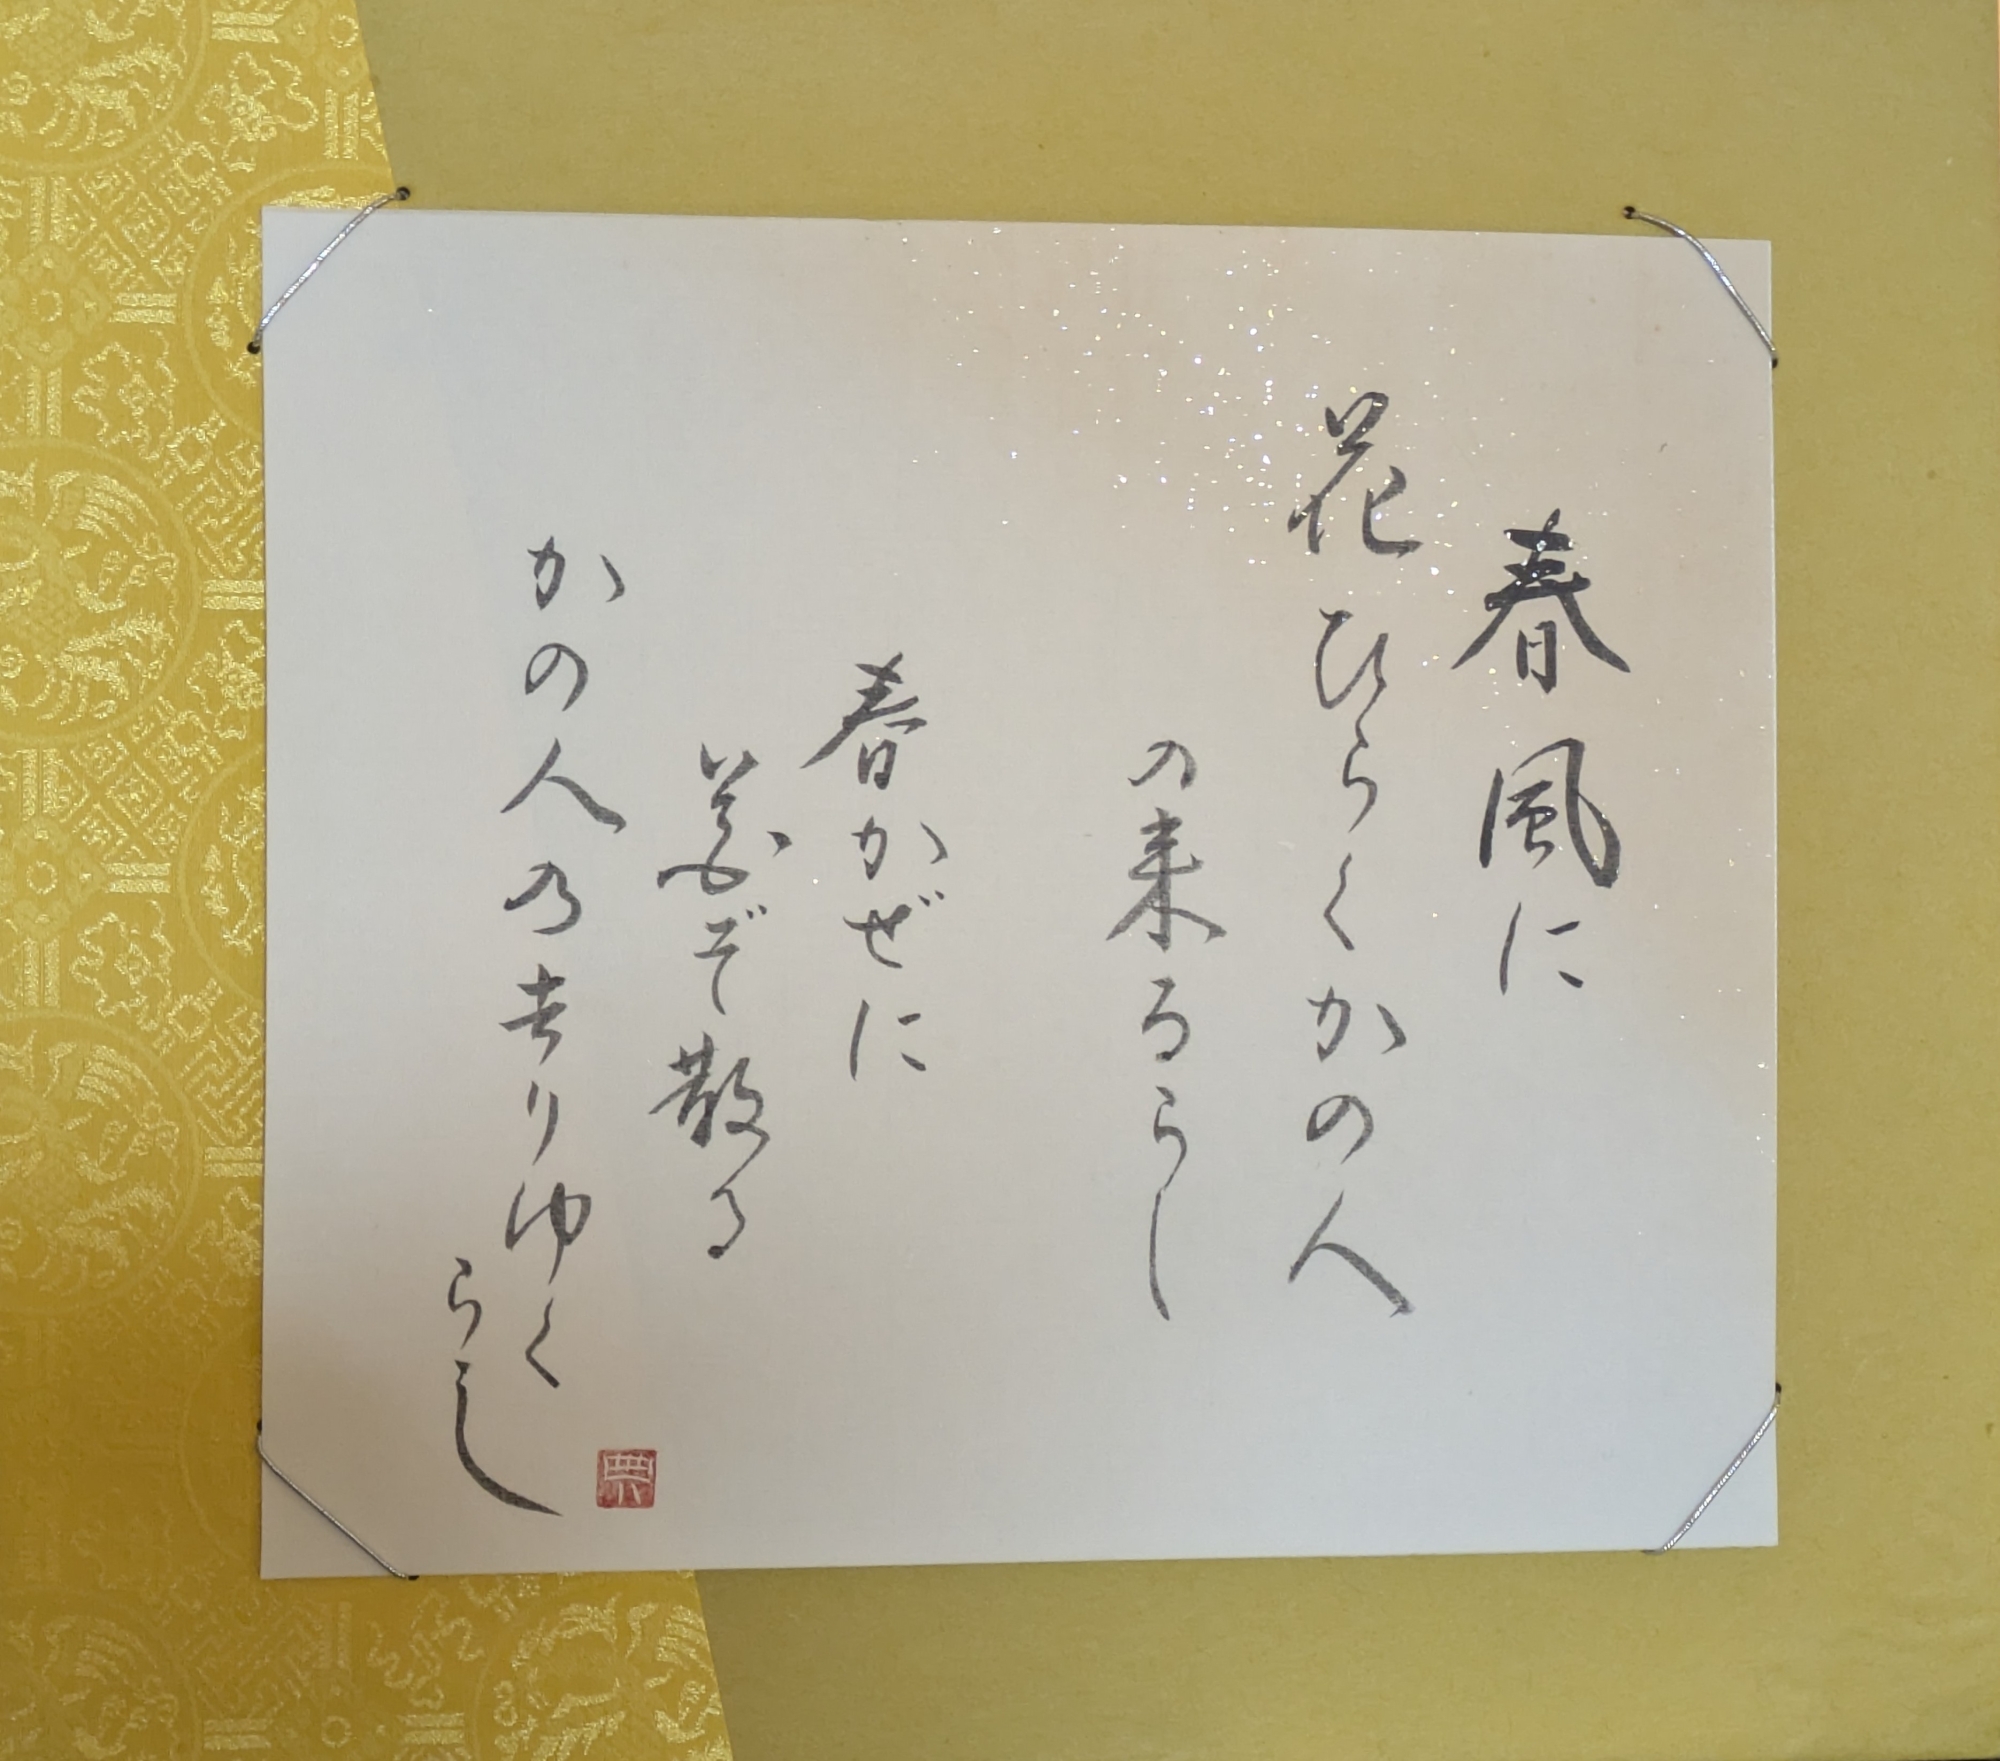 春風に
花ひらくかの人
の来るらし
春かぜに
花ぞ散る
かの人の去りゆく
らし